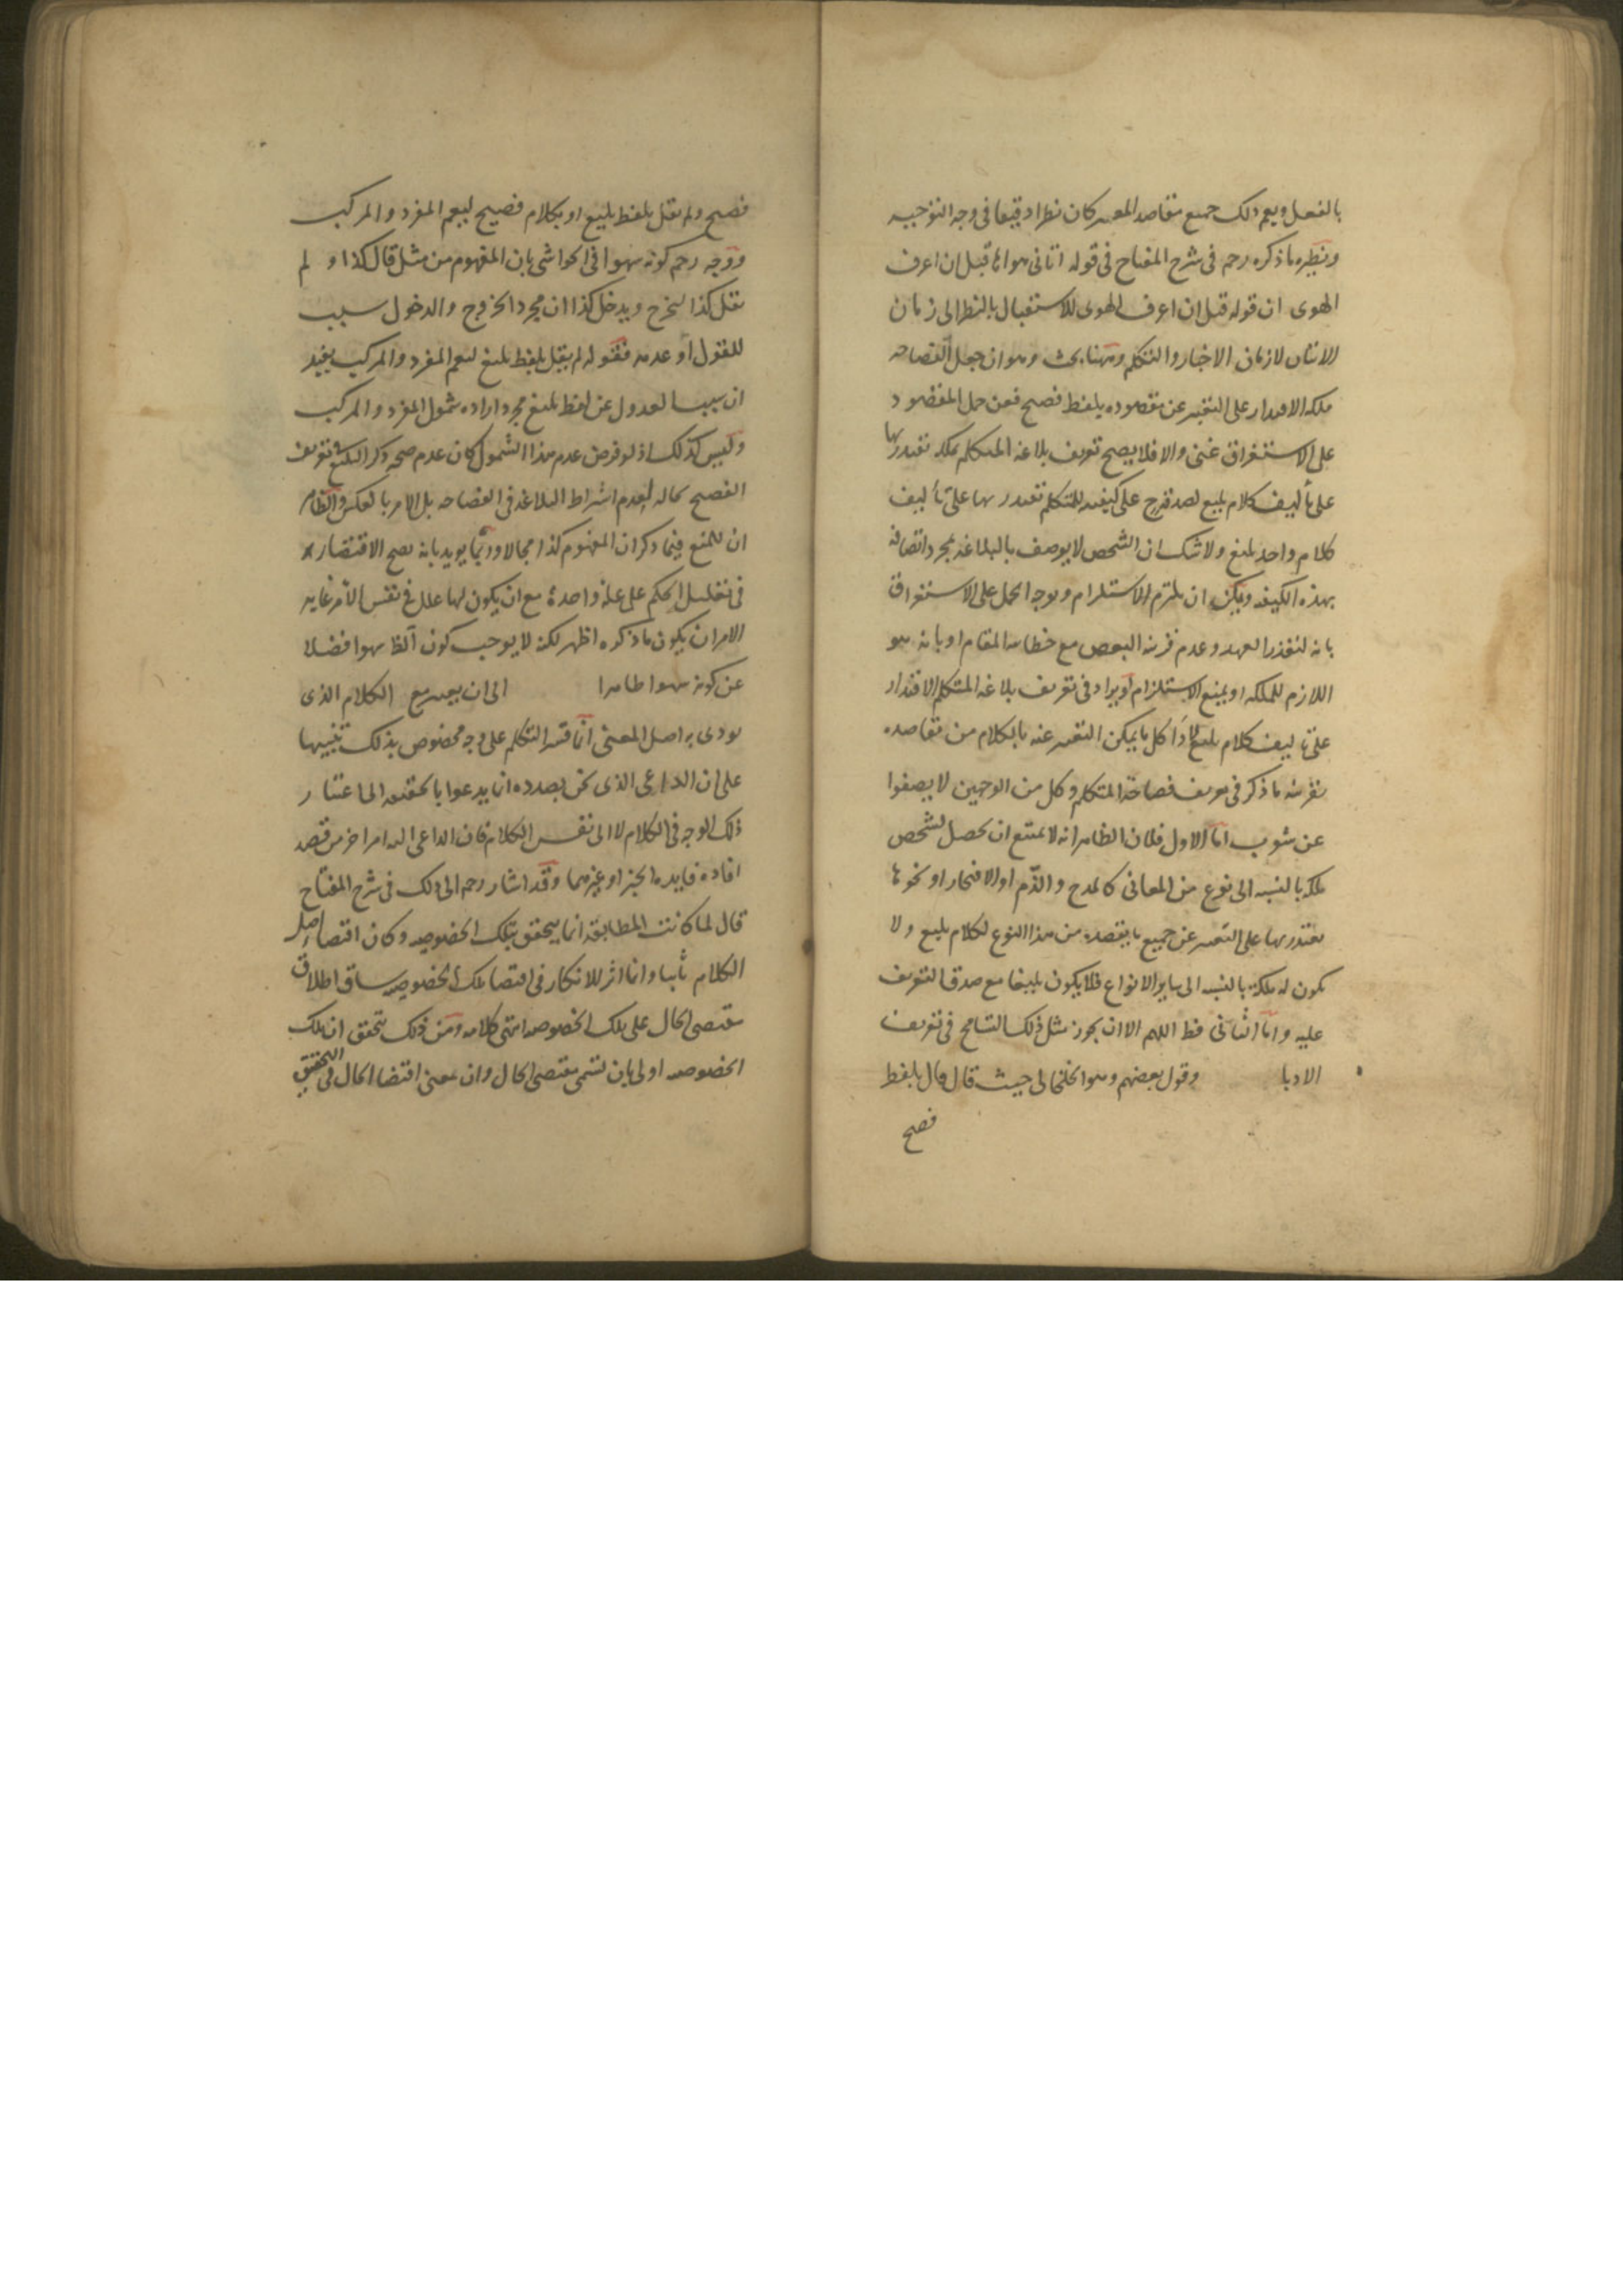 بالفعل ويعم ذلك جميع مقاصد المعبر كان نظرا دقيقا في وجه التوجيه
ونظيره ما ذكره رحمه في شرح المفتاح في قوله اتاني هواها قبل ان اعرف
الهوى ان قوله قبل ان اعرف الهوى للاستقبال بالنظر الى زمان
الاتيان لا زمان الاخبار والتكلم وههنا بحث وهو ان جعل الفصاحه
ملكه الاقتدار على التعبير عن مقصوده بلفظ فصيح فعن حمل المقصود
على الاستغراق غنى والا فلا يصح تعريف بلاغه المتكلم بملكه تقتدر بها
على تأليف كلام بليغ لصدقه ح على كيفيه للمتكلم تقتدر بها على تأليف
كلام واحد بليغ ولا شك ان الشخص لا يوصف بالبلاغه بمجرد اتصافه
بهذه الكيفيه ويمكن ان يلتزم الاستلزام ويوجه الحمل على الاستغراق
بانه لتعذر العهد وعدم قرينه البعض مع خطابيه المقام او بانه هو
اللازم للملكه او يمنع الاستلزام ويراد في تعريف بلاغه المتكلم الاقتدار
على تاليف كلام بليغ لاداء كل ما يمكن التعبير عنه بالكلام من مقاصده
بقرينه ما ذكر في تعريف فصاحة المتكلم وكل من الوجهين لا يصفوا
عن شوب اما الاول فلان الظاهر انه لا يمتنع ان يحصل لشخص
ملكه بالنسبه الى نوع من المعاني كالمدح والذم او الافتخار او نحوها
يقتدر بها على التعبير عن جميع ما يقصده من هذا النوع لكلام بليغ ولا
يكون له ملكة بالنسبه الى ساير الانواع فلا يكون بليغا مع صدق التعريف
عليه واما الثاني فظ اللهم الا ان يجوز مثل ذلك التسامح في تعريف
الادبا وقول بعضهم وهو الخلخالي حيث قال قال بلفظ
فصيح
فصيح ولم يقل بلفظ بليغ او بكلام فصيح ليعم المفرد والمركب
ووجه رحمه كونه سهوا في الحواشي بان المفهوم من مثل قال كذا ولم
يقل كذا ليخرج ويدخل كذا ان مجرد الخروج والدخول سبب
للقول او عدمه فقوله لم يقل بلفظ بليغ ليعم المفرد والمركب يفيد
ان سبب العدول عن لفظ بليغ مجرد اراده شمول المفرد والمركب
وليس كذلك اذ لو فرض عدم هذا الشمول كان عدم صحه ذكر البليغ في تعريف
الفصيح بحاله لعدم اشتراط البلاغه في الفصاحه بل الامر بالعكس والظاهر
ان للمنع فيما ذكر ان المفهوم كذا مجالا وربما يؤيد بانه يصح الاقتصار
في تعليل الحكم على علة واحدة مع ان يكون لها علل في نفس الامر غايه
الامر ان يكون ما ذكره اظهر لكنه لا يوجب كون الظ سهوا فضلا
عن كونه سهوا ظاهرا الى ان يعتبر مع الكلام الذي
يودى به اصل المعنى انما قسر التكلم على وجه مخصوص بذلك تنبيها
على ان الداعي الذي نحن بصدده انما يدعوا بالحقيقه الى اعتبار
ذلك الوجه في الكلام لا الى نفس الكلام فان الداعي اليه امر اخر من قصد
افاده فايده الخبر او غيرهما وقد اشار رحمه الى ذلك في شرح المفتاح
قال لما كانت المطابقة انما يتحقق بتلك الخصوصيه وكان اقتضا اصل
الكلام ثابتا وانما اثر للانكار في اقتضا تلك الخصوصيه ساق اطلاق
مقتضى الحال على تلك الخصوصيه انتهى كلامه ومن ذلك يتحقق ان تلك
الخصوصيه اولى بان تسمى مقتضى الحال وان معنى اقتضا الحال في التحقيق